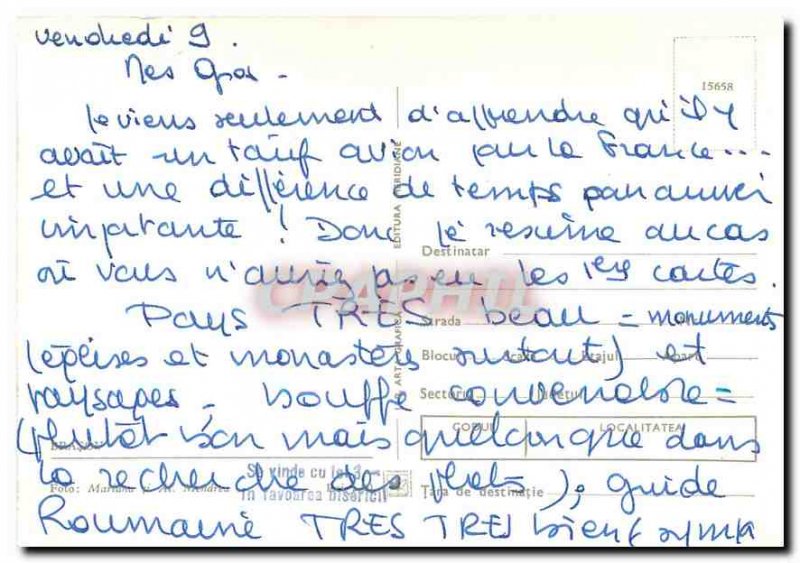 vendredi 9.
Mes
15658
Je viens seulement d'apprendre qu'il y
avait un tarif avion pour la France...
et une différence de temps par avion
importante ! Donc je résume au cas
où vous n'auriez pas eu les 1ères cartes.
Pays TRES beau = monuments
(églises et monastères surtout) et
paysages - bouffe convenable =
(plutôt bon mais quelconque dans
la recherche des plats), guide
Roumaine TRES TRES bien (sympa
EDITURA MERIDIANE
Destinatar
Strada
Blocul Scara Etajul Apart.
Sectorul Județul
CODUL LOCALITATEA
BRAȘOV
Se vinde cu lei 3
în favoarea bisericii
Foto:
Țara de destinație
CPAPHIL